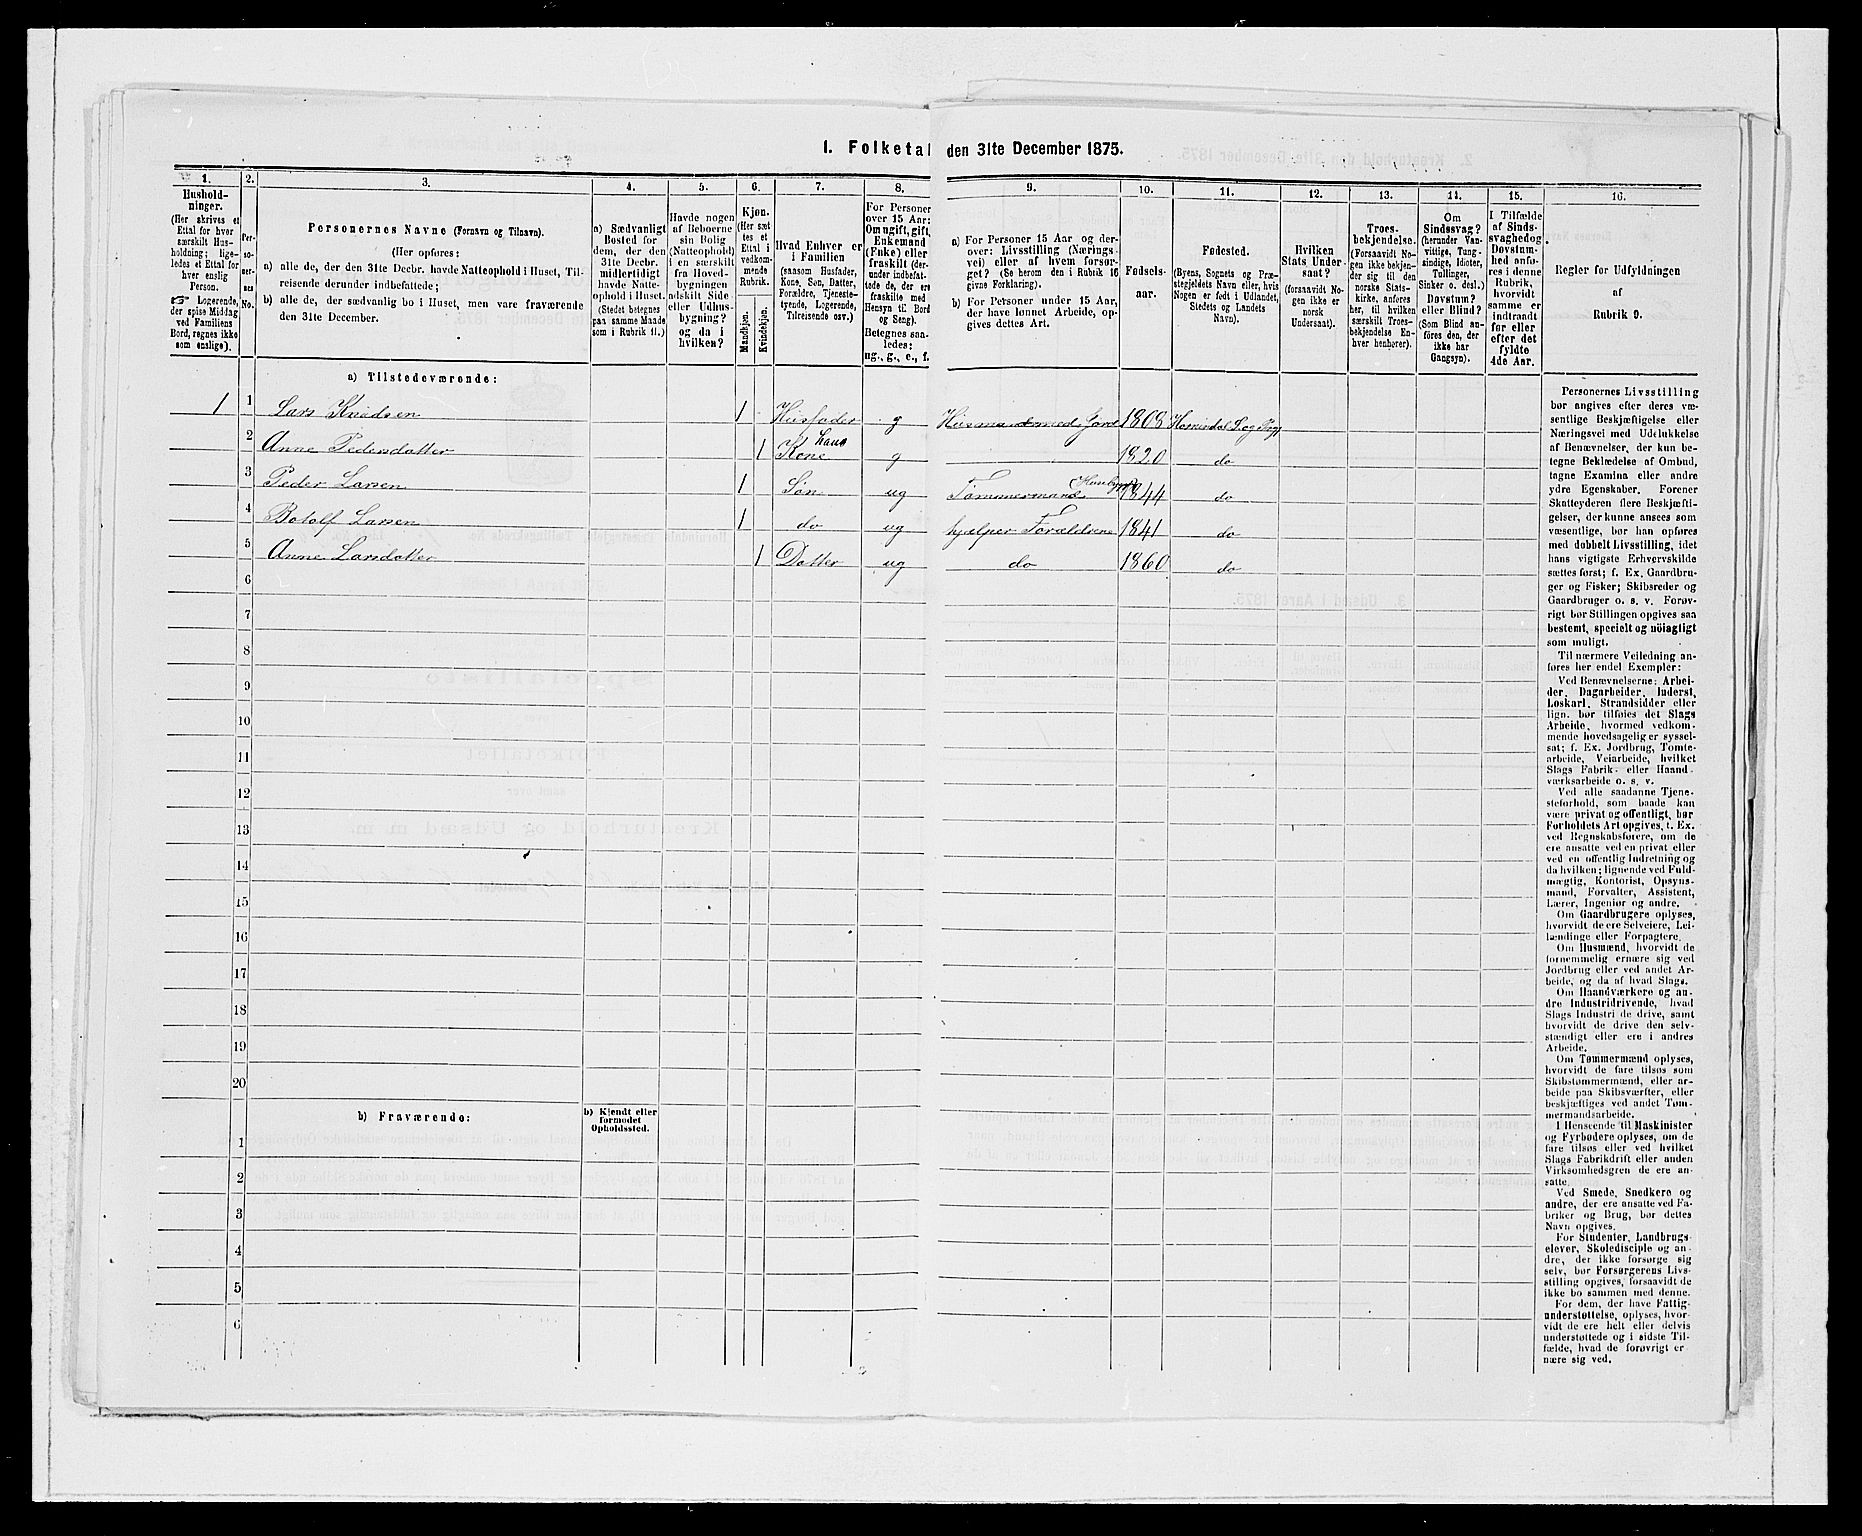 1. Folketal den 31te December 1875.
1. 2. 3. 4. 5. 6. 7. 8. 9. 10. 11. 12. 13. 14. 15. 16.
Hushold-
ninger.
(Her skrives et
Ettal for hver
særskilt Hus-
holdning; lige-
ledes et Ettal for
hver enslig
Person.
☞ Logerende,
der spise Middag
ved Familiens
Bord, regnes ikke
som enslige).
Per-
so-
ner-
nes
No.
Personernes Navne (Fornavn og Tilnavn).
(Her opføres:
a) alle de, der den 31te Decbr. havde Natteophold i Huset, Til-
reisende derunder indbefattede;
b) alle de, der sædvanlig bo i Huset, men vare fraværende
den 31te December.
a) Sædvanligt
Bosted for
dem, der den
31te Decbr.
midlertidigt
havde Natte-
ophold i Huset.
(Stedet betegnes
paa samme Maade
som i Rubrik 11.)
Havde nogen
af Beboerne
sin Bolig
(Natteophold)
i en særskilt
fra Hoved-
bygningen
adskilt Side
eller Udhus-
bygning?
og da i
hvilken?
Kjøn.
(Her sæt
tes et
Ettal i
vedkom-
mende
Rubrik.
Mandkjøn.
Kvindekjøn.
Hvad Enhver er
i Familien
(saasom Husfader,
Kone, Søn, Datter,
Forældre, Tjeneste-
tyende, Logerende,
Tilreisende osv.)
For Personer
over 15 Aar:
Om ugift, gift,
Enkemand
(Enke) eller
fraskilt (der-
under indbefat-
tede de, der ere
fraskilte med
Hensyn til Bord
og Seng).
Betegnes saa-
ledes:
ug., g., e., f.
a) For Personer 15 Aar og der-
over: Livsstilling (Nærings-
vei) eller af hvem forsør-
get? (Se herom den i Rubrik 16
givne Forklaring).
b) For Personer under 15 Aar,
der have lønnet Arbeide, op-
gives dettes Art.
Fødsels-
aar.
Fødested.
(Byens, Sognets og Præ-
stegjeldets Navn eller, hvis
Nogen er født i Udlandet,
Stedets og Landets
Navn).
Hvilken
Stats Under
saat?
(forsaavidt No-
gen ikke er
norsk
Undersaat).
Troes-
bekjendelse.
(Forsaavidt No-
gen ikke bekjen-
der sig til den
norske Stats-
kirke, anføres
her, til hvilken
særskilt Troes-
bekjendelse En-
hver henhører).
Om
Sindssvag?
(herunder Van-
vittige, Tung-
sindige, Idioter,
Tullinger,
Sinker o. desl.)
Døvstum?
eller Blind?
(Som Blind an-
føres den, der
ikke har
Gangsyn).
I Tilfælde
af Sinds-
svaghed og
Døvstum-
hed anfø-
res i denne
Rubrik,
hvorvidt
samme er
indtraadt
før eller
efter det
fyldte
4de Aar.
Regler for Udfyldningen
af
Rubrik 9.
a) Tilstedeværende:
1 1 Lars Knudsen 1 Husfader g Husmand med Jord 1808 Hornindal S. og Prgj
2 Anne Pedersdatter 1 Hans Kone g 1820 do
3 Peder Larsen 1 Søn ug Tømmermand 1844 do
4 Botolf Larsen 1 do ug hjelper Forældrene 1841 do
5 Anne Larsdatter 1 Datter ug do 1860 do
6
7
8
9
10
11
12
13
14
15
16
17
18
19
20
b) Fraværende: b) Kjendt eller
formodet
Opholdssted.
1
2
3
4
5
6
Personernes Livsstilling
bør angives efter deres væ-
sentlige Beskjæftigelse eller
Næringsvei med Udelukkelse
af Benævnelser, der kun be-
tegne Beklædelse af Ombud,
tagne Examina eller andre
ydre Egenskaber. Forener
Skatteyderen flere Beskjæfti-
gelser, der kunne ansees som
væsentlige, bør han opføres
med dobbelt Livsstilling, idet
hans vigtigste Erhvervskilde
sættes først; f. Ex. Gaardbru-
ger og Fisker; Skibsreder og
Gaardbruger o. s. v. Forøv-
rigt bør Stillingen opgives saa
bestemt, specielt og nöiagtigt
som muligt.
Til nærmere Veiledning an-
føres her endel Exempler:
Ved Benævnelserne: Arbei-
der, Dagarbeider, Inderst,
Løskarl, Strandsidder eller
lign. bør tilføies det Slags
Arbeide, hvormed vedkom-
mende hovedsagelig er syssel-
sat; f. Ex. Jordbrug, Tomte-
arbeide, Veiarbeide, hvilket
Slags Fabrik- eller Haand-
værksarbeide o. s. v.
Ved alle saadanne Tjene-
steforhold, som baade kan
være privat og offentligt, bør
Forholdets Art opgives, t. Ex.
ved Regnskabsførere, om de
ere ansatte ved en privat eller
ved en offentlig Indretning og
da hvilken; lignende ved Fuld-
mægtig, Kontorist, Opsyns-
mand, Forvalter, Assistent,
Lærer, Ingeniør og andre.
Om Gaardbrugere oplyses,
hvorvidt de ere Selveiere, Lei-
lændinge eller Forpagtere.
Om Husmænd, hvorvidt de
fornemmelig ernære sig ved
Jordbrug eller ved andet Ar-
beide, og da af hvad Slags.
Om Haandværkere og an-
dre Industridrivende, hvad
Slags Industri de drive, samt
hvorvidt de drive den selv-
stændigt eller ere i andres
Arbeide.
Om Tømmermænd oplyses,
hvorvidt de fare tilsøs som
Skibstømmermænd, eller ar-
beide paa Skibsværfter, eller
beskjæftiges ved andet Tøm-
mermandsarbeide.
I Henseende til Maskinister
og Fyrbødere oplyses, om de
fare tilsøs eller ved hvilket
Slags Fabrikdrift eller anden
Virksomhedsgren de ere an-
satte.
Ved Smede, Snedkere og
andre, der ere ansatte ved Fa-
briker og Brug, bør dettes
Navn opgives.
For Studenter, Landbrugs-
elever, Skoledisciple og an-
dre, der ikke forsørge sig
selv, bør Forsørgerens Livs-
stilling opgives, forsaavidt de
ikke bo sammen med denne.
For dem, der have Fattig-
understøttelse, oplyses, hvor-
vidt de ere helt eller delvis
understøttede og i sidste Til-
fælde, hvad de forøvrigt er-
nære sig ved.